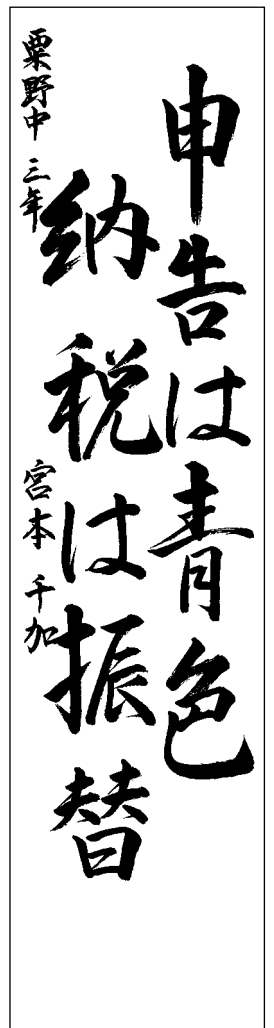 申告は青色
納税は振替
粟野中 三年 宮本 千加